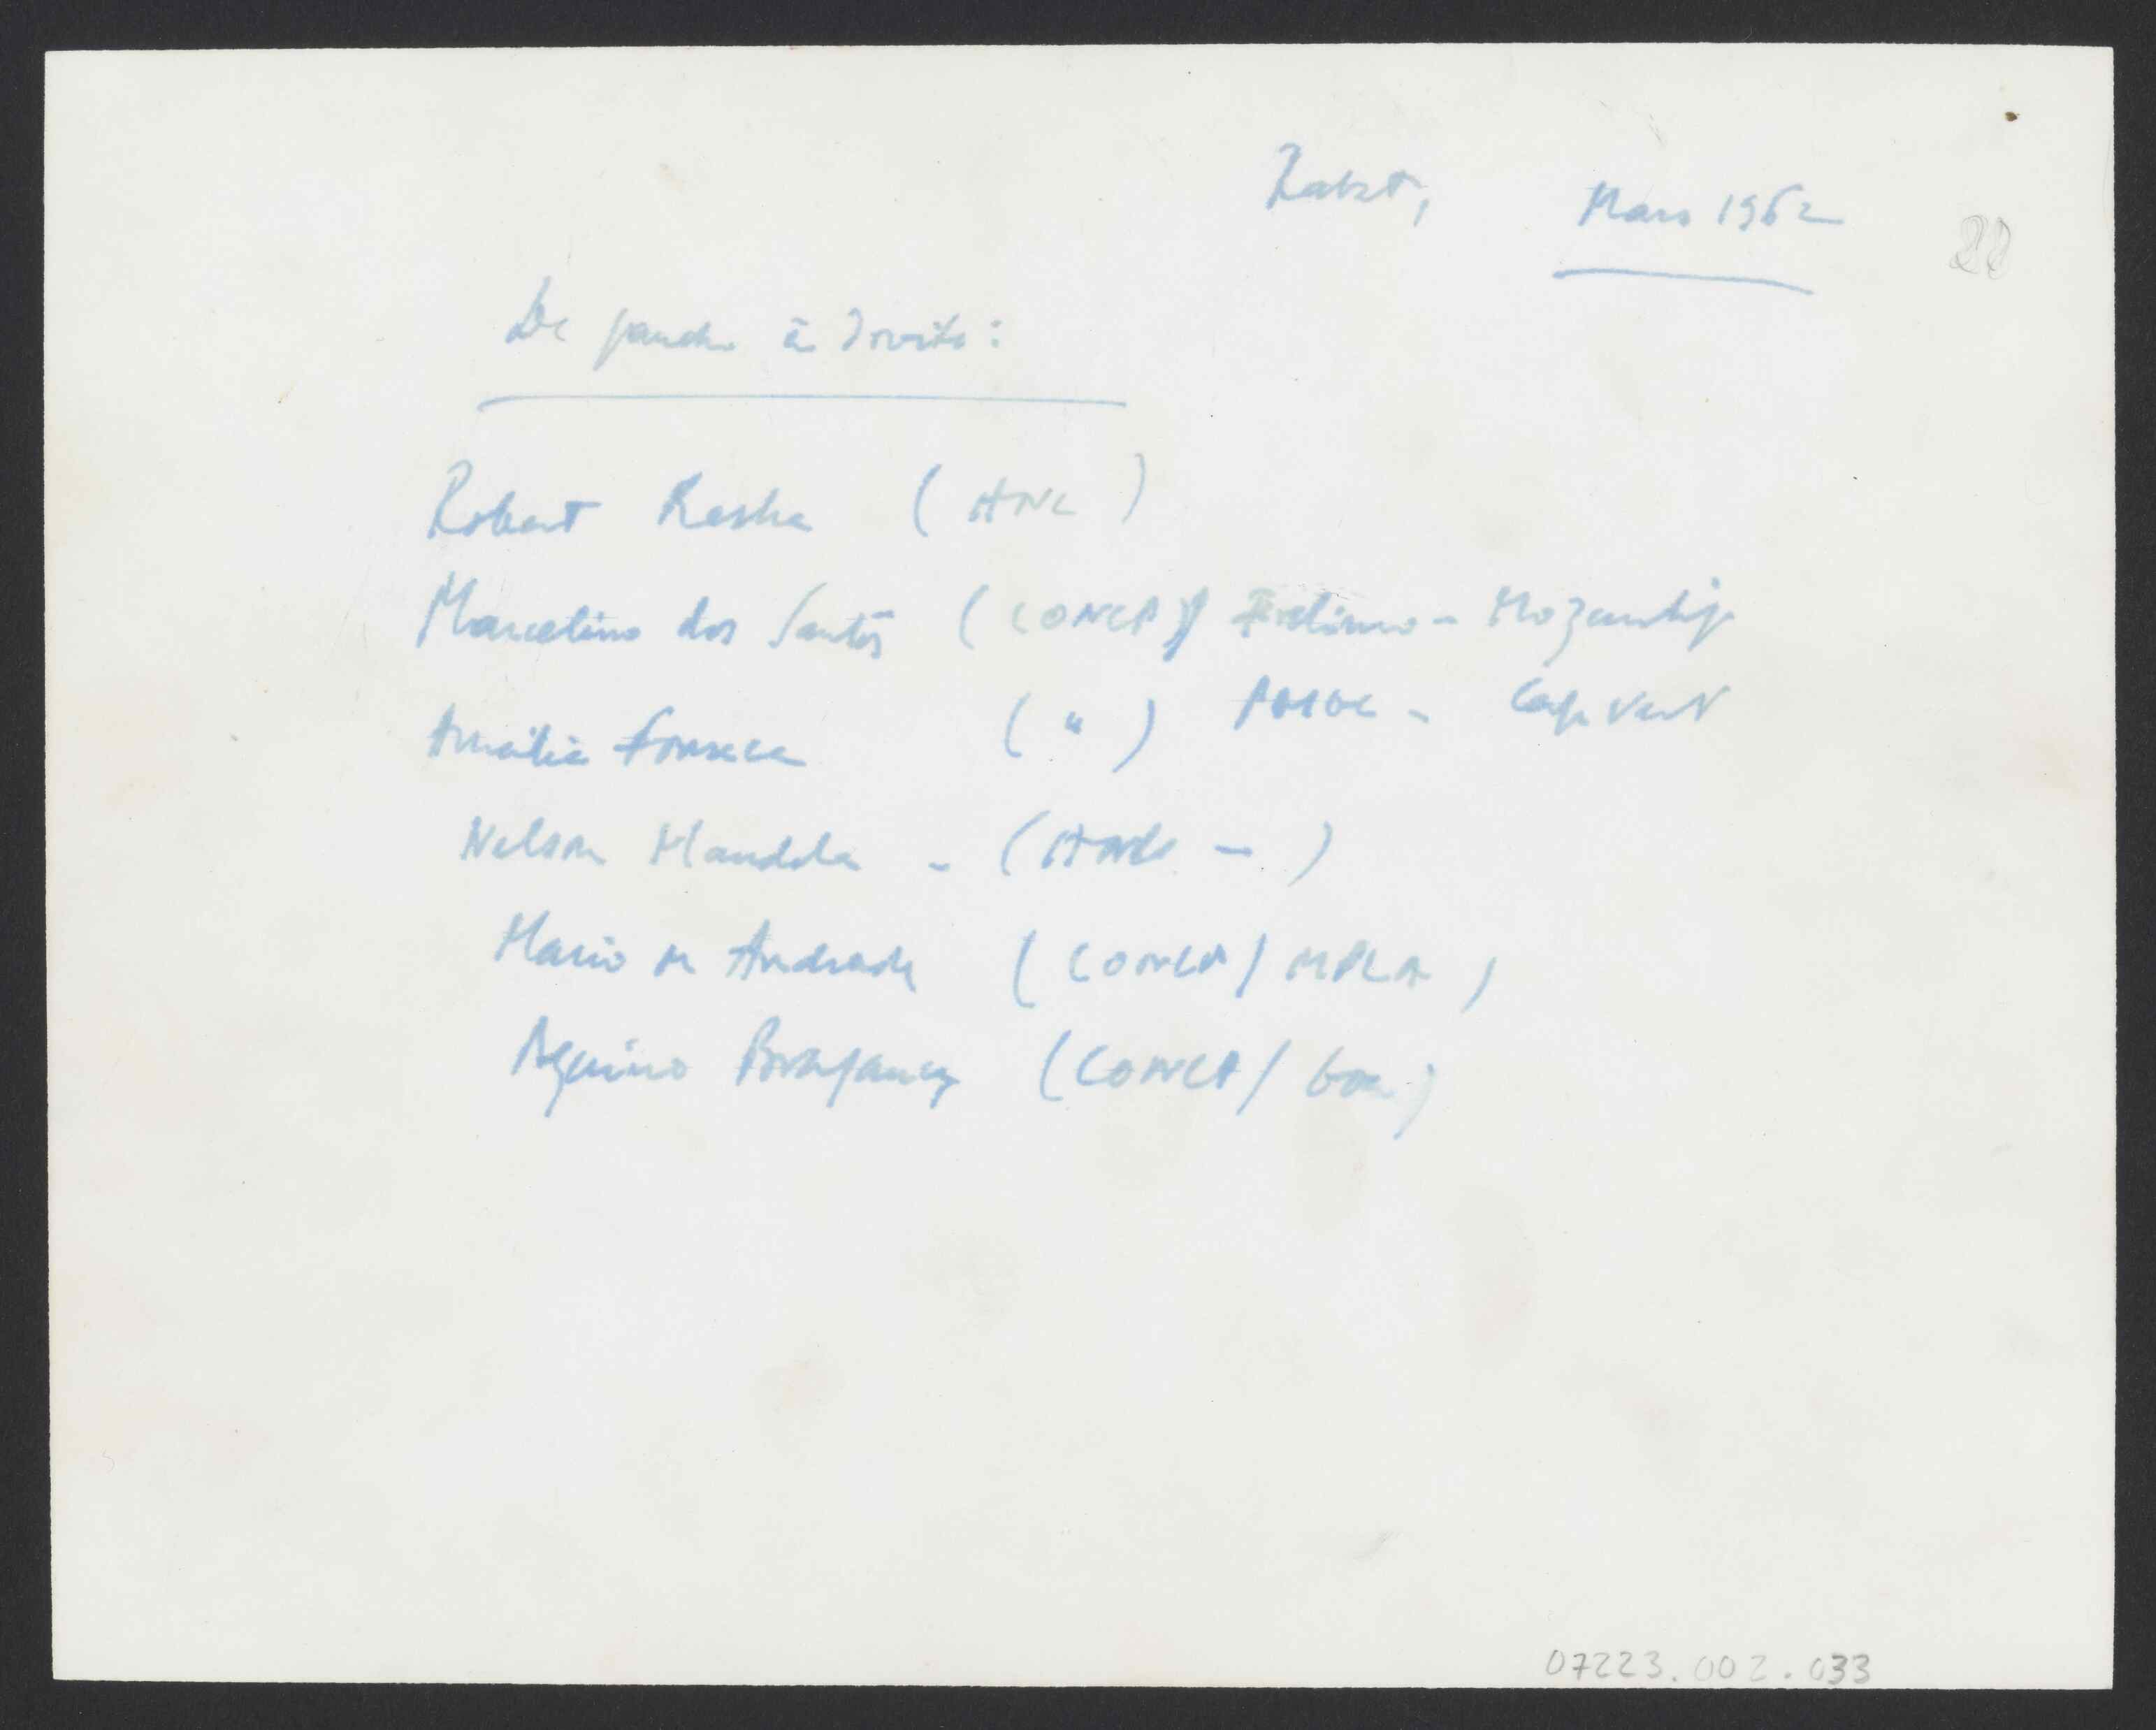 Rabat, Mars 1962
22
De gauche à droite:
Robert Resha (ANC)
Marcelino dos Santos (CONCP) Frelimo - Mozambique
Amália Fonseca (") PAIGC - Cap Vert
Nelson Mandela - (ANC -)
Mario de Andrade (CONCP / MPLA)
Aquino Bragança (CONCP / Goa)
07223.002.033